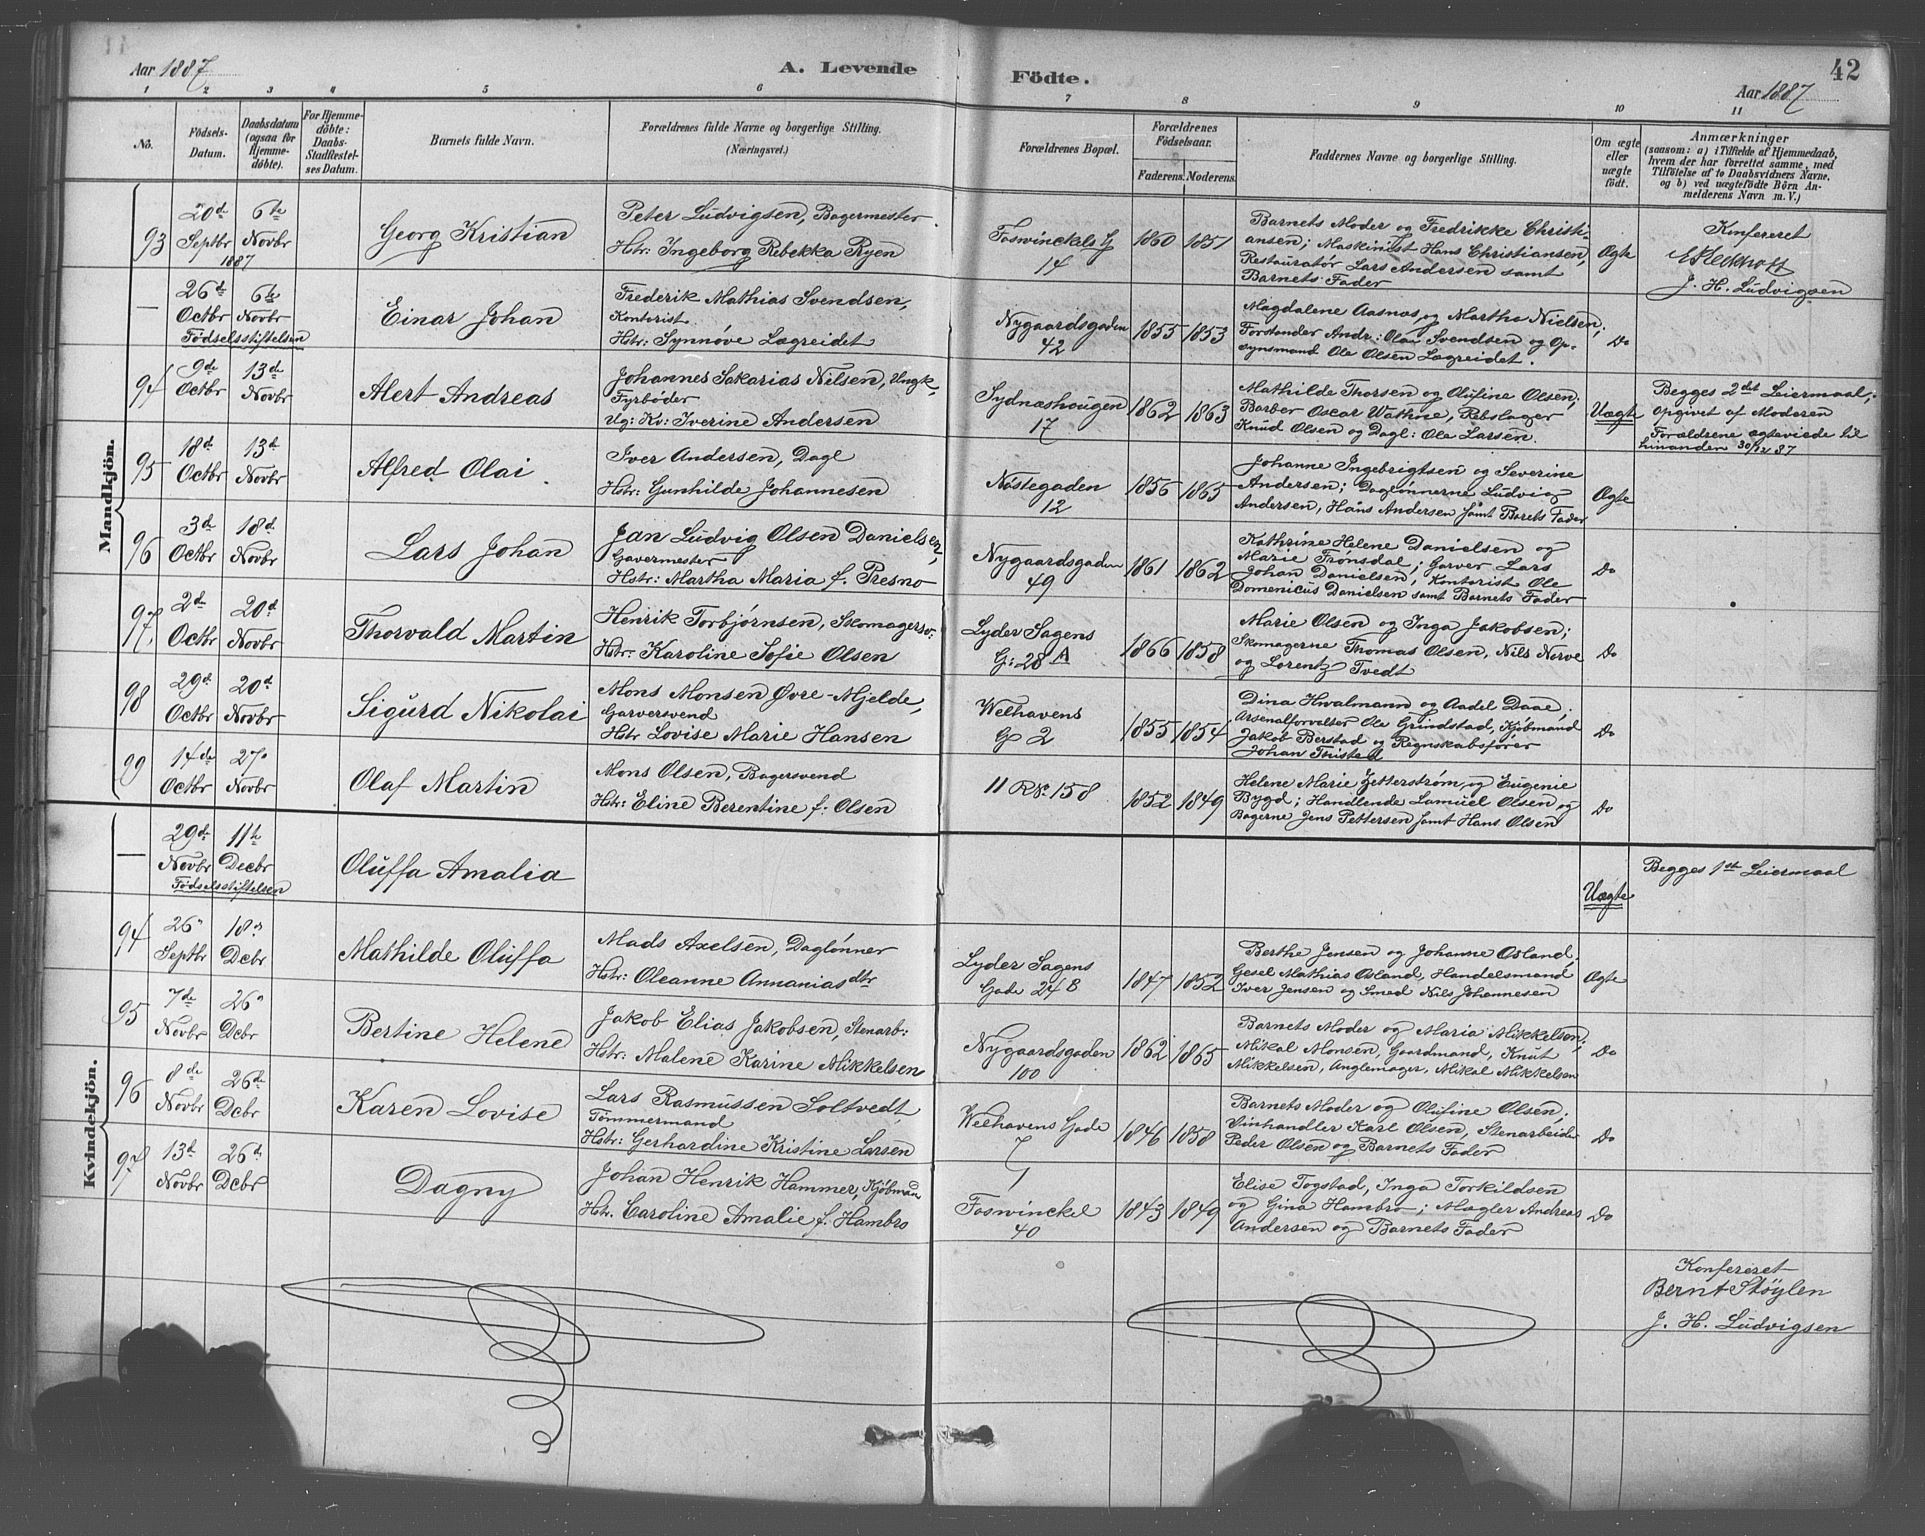 Aar 1887
A. Levende
Födte.
Aar 1887
42
1 2 3 4 5 6 7 8 9 10 11
No.
Födsels-
Datum.
Daabsdatum
(ogsaa for
Hjemme-
döbte).
For Hjemme-
döbte:
Daabs-
Stadfæstel-
ses Datum.
Barnets fulde Navn.
Forældrenes fulde Navne og borgerlige Stilling.
(Næringsvei.)
Forældrenes Bopæl.
Forældrenes
Födselsaar.
Faderens. Moderens.
Faddernes Navne og borgerlige Stilling.
Om ægte
eller
uægte
födt.
Anmærkninger
(saasom: a) i Tilfælde af Hjemmedaab,
hvem der har forrettet samme, med
Tilföielse af to Daabsvidners Navne,
og b) ved uægtefödte Börn An-
melderens Navn m. V.)
Mandkjön.
93
20de Septbr 1887
6te Novbr
Georg Kristian
Peter Ludvigsen, Bagermester
Hstr: Ingeborg Rebekka Ryen
Foswinckels G
14
1860 1851
Barnets Moder og Fredrikke Christi-
ansen; Maskinist Hans Christiansen,
Restauratør Lars Andersen samt
Barnets Fader
Ægte
Konfereret
J. H. Ludvigsen
—
26de Octbr
6te Novbr
Fødselsstiftelsen
Einar Johan
Frederik Mathias Svendsen,
Kontorist
Hstr: Synnøve Lægreidet
Nygaardsgaden
42
1855 1853
Magdalene Aasnæs og Martha Nielsen;
Forstander Andr: Olai Svendsen og Op-
synsmand Ole Olsen Lægreidet.
Do
94
9de Octbr
13de Novbr
Alert Andreas
Johannes Sakarias Nilsen, Ungk,
Fyrbøder
Ug: Kv: Iverine Andersen
Sydnæshougen
17
1862 1863
Mathilde Thorsen og Olufine Olsen;
Barber Oscar Wathne, Rebslager
Knud Olsen og Dagl: Ole Larsen.
Uægte
Begges 2det Leiermaal;
opgivet af Moderen
Forældrene ægteviede til
hinanden 30/12 87
95
18d Octbr
13d Novbr
Alfred Olai
Iver Andersen, Dagl
Hstr: Gunhilde Johannesen
Nøstegaden
12
1856 1865
Johanne Ingebrigtsen og Severine
Andersen; Daglønnerne Ludvig
Andersen, Hans Andersen samt Barnets Fader
Ægte
96
3d Octbr
18d Novbr
Lars Johan
Jan Ludvig Olsen Danielsen,
Garvermester
Hstr: Martha Maria f. Presno
Nygaardsgaden
49
1861 1862
Kathrine Helene Danielsen og
Marie Frønsdal; Garver Lars
Johan Danielsen, Kontorist Ole
Domenicus Danielsen samt Barnets Fader
Do
97.
2de Octbr
20d Novbr
Thorvald Martin
Henrik Torbjørnsen, Skomagersv.
Hstr: Karoline Sofie Olsen
Lyder Sagens
G: 28 A
1866 1858
Marie Olsen og Inga Jakobsen;
Skomagerne Thomas Olsen, Nils Norve
og Lorentz Tvedt
Do
98
29d Octbr
20d Novbr
Sigurd Nikolai
Mons Monsen Øvre-Mjelde,
Garversvend
Hstr Lovise Marie Hansen
Welhavens
G 2
1855 1854
Dina Hwalmann og Aadel Daae;
Arsenalforvalter Ole Grindstad, Kjøbmand
Jakob Berstad og Regnskabsfører
Johan Thisted
Do
99
14de Octbr
27" Novbr
Olaf Martin
Mons Olsen, Bagersvend
Hstr: Eline Berentine f: Olsen
11 R No. 158
1852 1849
Helene Marie Zetterstrøm, og Eugenie
Bygd; Handlende Samuel Olsen, og
Bagerne Jens Pettersen samt Hans Olsen
Do
Kvindekjön.
—
29de Novbr
11te Decbr
Fødselsstiftelsen
Oluffa Amalia
Uægte
Begges 1ste Leiermaal
94
26" Septbr
18" Dcbr
Mathilde Oluffa
Mads Axelsen, Daglønner
Hstr: Oleanne Annaniasdtr
Lyder Sagens
Gade 24 B
1847 1852
Berthe Jensen og Johanne Osland,
Gesel Mathias Osland, Handelsmand
Iver Jensen og Smed Nils Johannesen
Ægte
95
7de Novbr
26" Dcbr
Bertine Helene
Jakob Elias Jakobsen, Stenarb:
Hstr: Malene Karine Mikkelsen
Nygaardsgaden
100
1862 1865
Barnets Moder og Maria Mikkelsen;
Mikal Monsen, Gaardmand, Knut
Mikkelsen, Anglemager, Mikal Mikkelsen
Do
96
8de Novbr
26de Dcbr
Karen Lovise
Lars Rasmussen Soltvedt
Tømmermand
Hstr: Gerhardine Kristine Larsen
Welhavens Gade
7
1846 1858
Barnets Moder og Olufine Olsen;
Vinhandler Karl Olsen, Stenarbeider
Peder Olsen og Barnets Fader
Do
97
13d Novbr
26d Dcbr
Dagny
Johan Henrik Hammer, Kjøbman
Hstr. Caroline Amalie f. Hambro
Foswinckel
40
1843 1849
Elise Togstad, Inga Torkildsen
og Gina Hambro; Mægler Andreas
Andersen og Barnets Fader
Do
Konfereret
Bernt Støylen
J. H. Ludvigsen